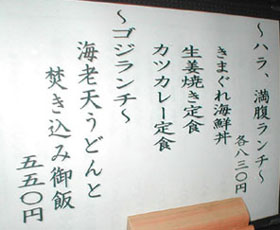 ～ハラ、満腹ランチ～
各八三〇円
きまぐれ海鮮丼
生姜焼き定食
カツカレー定食
～ゴジランチ～
海老天うどんと
焚き込み御飯
五五〇円